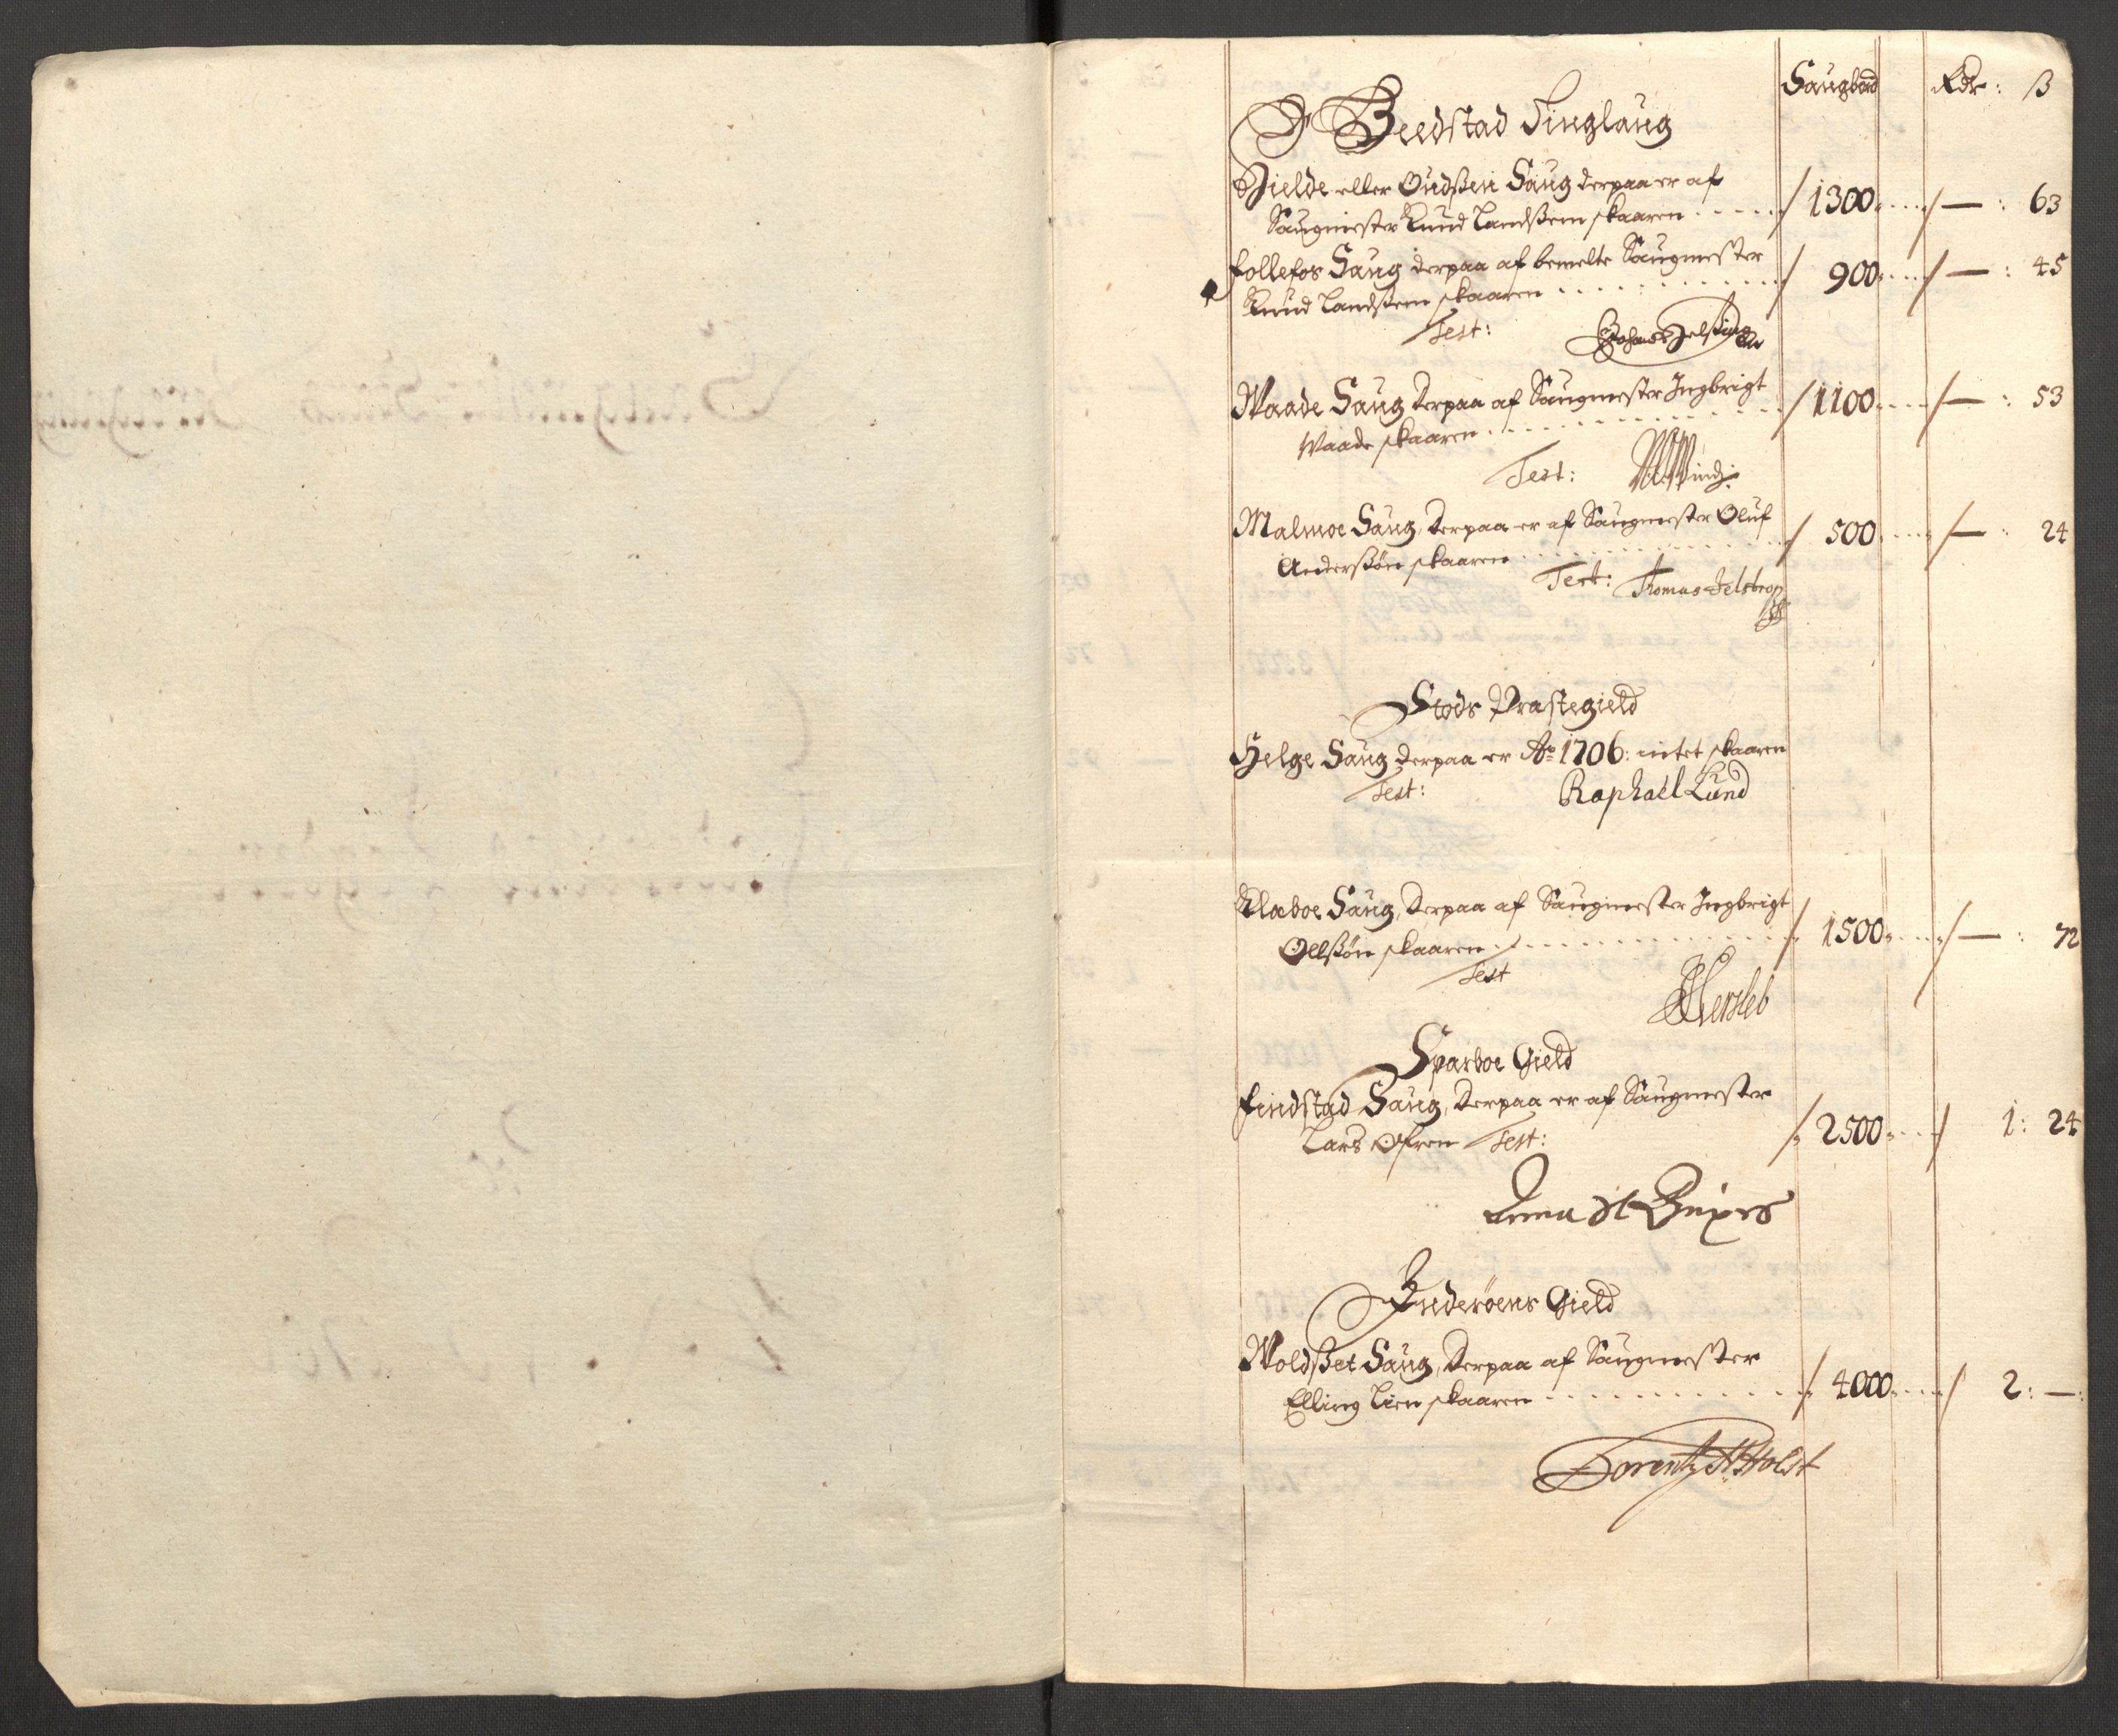 Saugbord Rdr: ß
Beedstad Tinglaug
Hielde eller Oudßen Saug derpaa er af
Saugmester Knud Landßem skaaren 1300 — : 63
Follefos Saug derpaa af bemelte Saugmester
Knud Landßem skaaren 900 — : 45
Test:
Waade Saug derpaa af Saugmester Ingbrigt
Waade skaaren 1100 — : 53
Test:
Malmoe Saug, derpaa er af Saugmester Oluf
Anderßøn skaaren 500 — : 24
Test: Thomas Jelstrop
Stods Præstegield
Helge Saug derpaa er Ao 1706: intet skaaren
Test: Raphaël Lund
Klæboe Saug, derpaa af Saugmester Ingbrigt
Ollßøn skaaren 1500 — : 72
Test
Hersleb
Sparboe Gield
Findstad Saug, derpaa er af Saugmester
Lars Øfren Test: 2500 1: 24
Anna Sl
Inderøens Gield
Woldßet Saug, derpaa af Saugmester
Elling Lien skaaren 4000 2: —:
Lorentz Holst